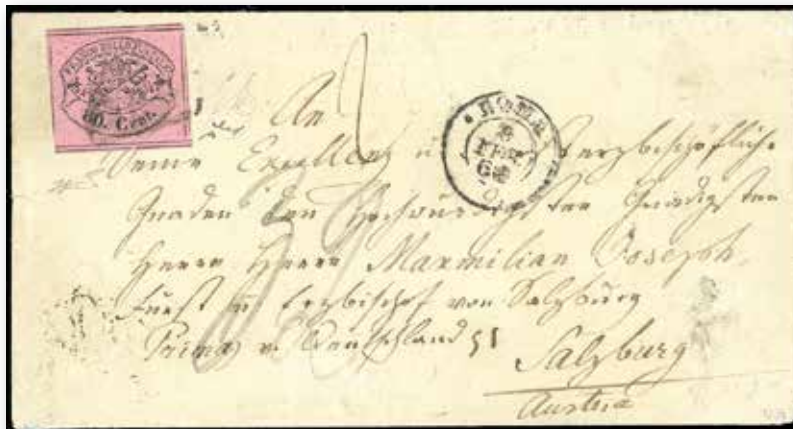 FRANCO BOLLO POSTALE
80. Cent.
ROMA
FEB
68
An
Seine Excellenz u erzbischöfliche
Gnaden den Hochwürdigsten Gnädigsten
Herrn Herrn Maxmilian Joseph
Fürst u Erzbischof von Salzburg
Primas v. Deutschland
Salzburg
Austria